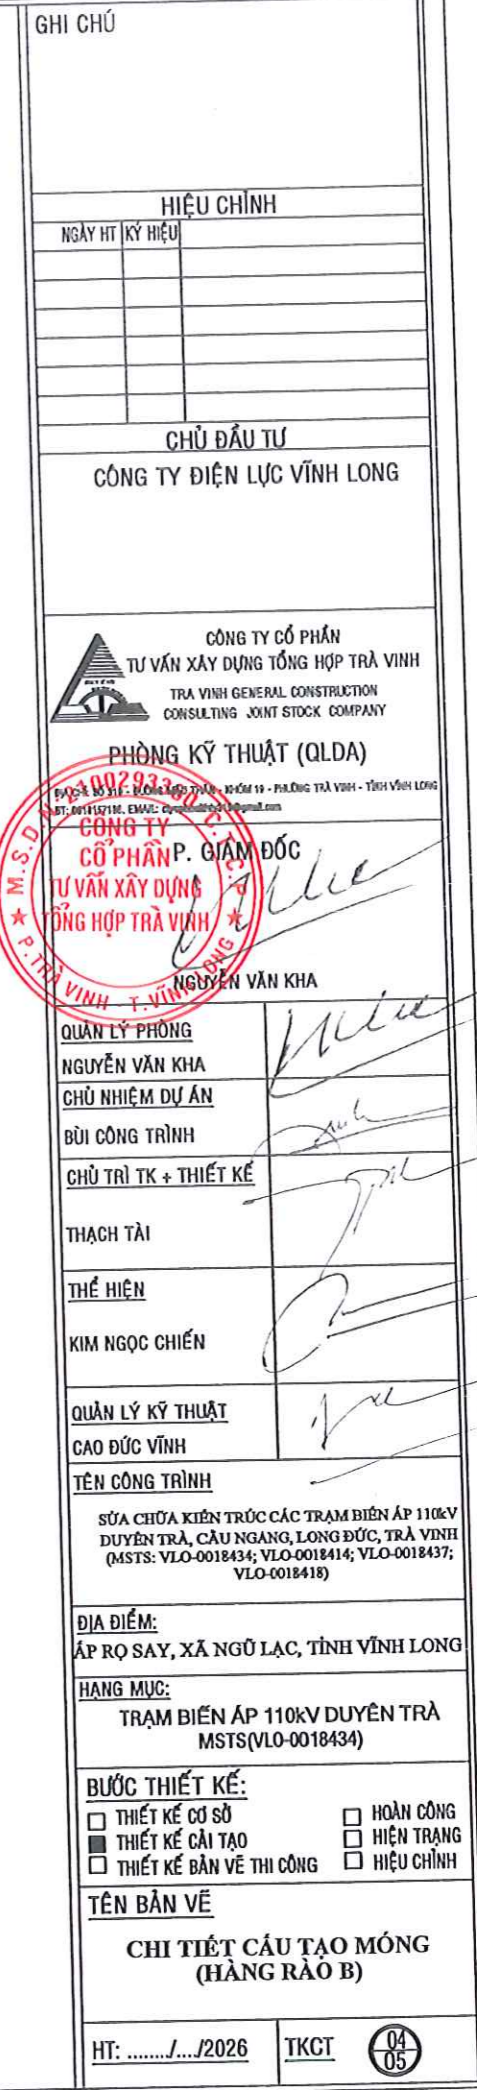 GHI CHÚ
HIỆU CHỈNH
NGÀY HT KÝ HIỆU
CHỦ ĐẦU TƯ
CÔNG TY ĐIỆN LỰC VĨNH LONG
CÔNG TY CỔ PHẦN
TƯ VẤN XÂY DỰNG TỔNG HỢP TRÀ VINH
TRA VINH GENERAL CONSTRUCTION
CONSULTING JOINT STOCK COMPANY
PHÒNG KỸ THUẬT (QLDA)
- KHÓM 10 - PHƯỜNG TRÀ VINH - TỈNH VĨNH LONG
P. GIÁM ĐỐC
M.S.D.N: C.T.C.P
CÔNG TY
CỔ PHẦN
TƯ VẤN XÂY DỰNG
TỔNG HỢP TRÀ VINH
P. TRÀ VINH - T. VĨNH LONG
NGUYỄN VĂN KHA
QUẢN LÝ PHÒNG
NGUYỄN VĂN KHA
CHỦ NHIỆM DỰ ÁN
BÙI CÔNG TRÌNH
CHỦ TRÌ TK + THIẾT KẾ
THẠCH TÀI
THỂ HIỆN
KIM NGỌC CHIẾN
QUẢN LÝ KỸ THUẬT
CAO ĐỨC VĨNH
TÊN CÔNG TRÌNH
SỬA CHỮA KIẾN TRÚC CÁC TRẠM BIẾN ÁP 110kV
DUYÊN TRÀ, CẦU NGANG, LONG ĐỨC, TRÀ VINH
(MSTS: VLO-0018434; VLO-0018414; VLO-0018437;
VLO-0018418)
ĐỊA ĐIỂM:
ẤP RỌ SAY, XÃ NGŨ LẠC, TỈNH VĨNH LONG
HẠNG MỤC:
TRẠM BIẾN ÁP 110kV DUYÊN TRÀ
MSTS(VLO-0018434)
BƯỚC THIẾT KẾ:
THIẾT KẾ CƠ SỞ
THIẾT KẾ CẢI TẠO
THIẾT KẾ BẢN VẼ THI CÔNG
HOÀN CÔNG
HIỆN TRẠNG
HIỆU CHỈNH
TÊN BẢN VẼ
CHI TIẾT CẤU TẠO MÓNG
(HÀNG RÀO B)
HT: ......../..../2026
TKCT
04
05